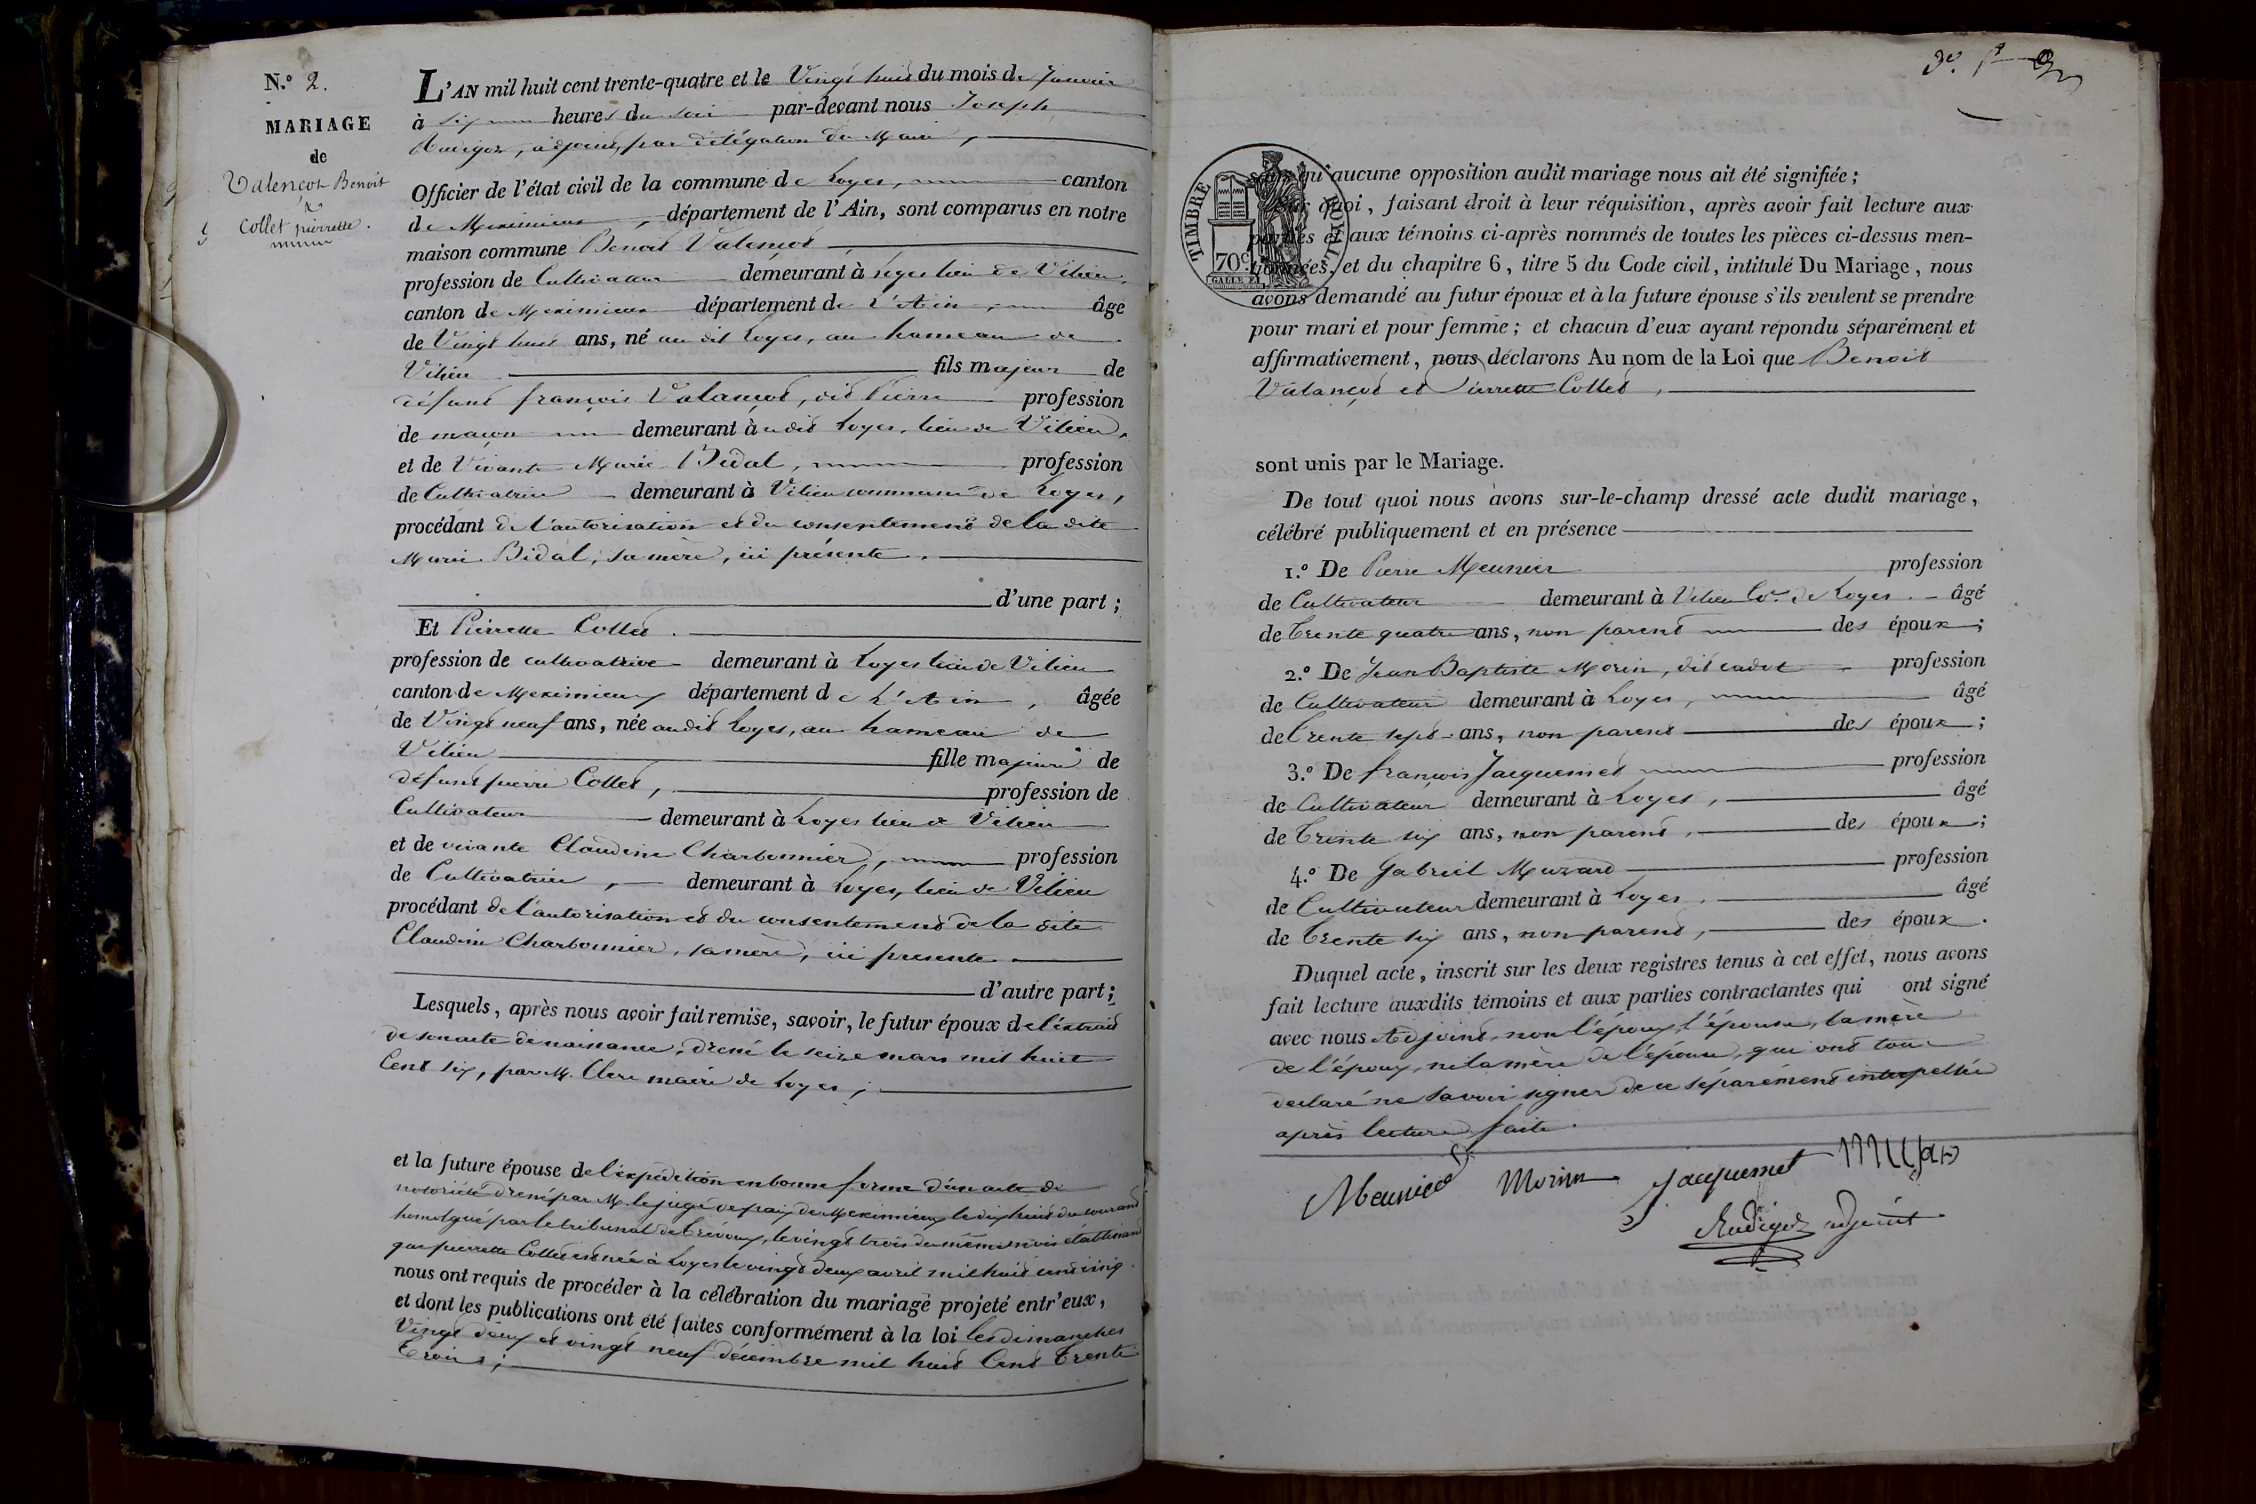 N.° 2.
MARIAGE
de
Valençot Benoit
&
Collet pierrette.
L'AN mil huit cent trente-quatre et le Vingt huit du mois de Janvier
à six heures du soir par-devant nous Joseph
Rudigoz, adjoint, par délégation du Maire,
Officier de l'état civil de la commune de Loyes, canton
de Meximieux, département de l'Ain, sont comparus en notre
maison commune Benoit Valençot
profession de Cultivateur demeurant à Loyes lieu de Vilieu,
canton de Meximieux département de L'Ain, âge
de Vingt huit ans, né au dit Loyes, au hameau de
Vilieu fils majeur de
défunt françois Valançot, dit Pierre profession
de maçon demeurant à udit Loyes, lieu de Vilieu,
et de Vivante Marie Bidal, profession
de Cultivatrice demeurant à Vilieu commune de Loyes,
procédant de l'autorisation et du consentement de la dite
Marie Bidal, sa mère, ici présente.
d'une part ;
Et Pierrette Collet.
profession de cultivatrice demeurant à Loyes lieu de Vilieu
canton de Meximieux département de L'Ain, âgée
de Vingt neuf ans, née audit Loyes, au hameau de
Vilieu fille majeure de
défunt pierre Collet, profession de
Cultivateur demeurant à Loyes lieu de Vilieu
et de vivante Claudine Charbonnier, profession
de Cultivatrice, demeurant à Loyes, lieu de Vilieu
procédant de l'autorisation et du consentement de la dite
Claudine Charbonnier, sa mère, ici présente
d'autre part ;
Lesquels, après nous avoir fait remise, savoir, le futur époux de l'extrait
de son acte de naissance, dressé le seize mars mil huit
Cent six, par M. Clerc maire de Loyes ;
et la future épouse de l'expédition en bonne forme d'un acte de
notoriété dressé par M. le juge de paix de Meximieux le dix huit du courant
homologué par le tribunal de Trévoux, le vingt trois du même mois établissant
que pierrette Collet est née à Loyes le vingt deux avril mil huit cent cinq.
nous ont requis de procéder à la célébration du mariage projeté entr'eux,
et dont les publications ont été faites conformément à la loi les dimanches
Vingt deux et vingt neuf décembre mil huit Cent Trente
Trois ;
TIMBRE ROYAL
70c
sans qu'aucune opposition audit mariage nous ait été signifiée ;
Sur quoi, faisant droit à leur réquisition, après avoir fait lecture aux
parties et aux témoins ci-après nommés de toutes les pièces ci-dessus men-
tionnées, et du chapitre 6, titre 5 du Code civil, intitulé Du Mariage, nous
avons demandé au futur époux et à la future épouse s'ils veulent se prendre
pour mari et pour femme ; et chacun d'eux ayant répondu séparément et
affirmativement, nous déclarons Au nom de la Loi que Benoit
Valançot et Pierrette Collet,
sont unis par le Mariage.
De tout quoi nous avons sur-le-champ dressé acte dudit mariage,
célébré publiquement et en présence
1.° De Pierre Meunier profession
de Cultivateur demeurant à Vilieu Cne de Loyes. âgé
de Trente quatre ans, non parent des époux ;
2.° De Jean Baptiste Morin, dit cadet profession
de Cultivateur demeurant à Loyes, âgé
de Trente sept ans, non parent des époux ;
3.° De françois Jacquemet profession
de Cultivateur demeurant à Loyes, âgé
de Trente six ans, non parent, des époux ;
4.° De Gabriel Muzard profession
de Cultivateur demeurant à Loyes. âgé
de Trente six ans, non parent, des époux.
Duquel acte, inscrit sur les deux registres tenus à cet effet, nous avons
fait lecture auxdits témoins et aux parties contractantes qui ont signé
avec nous Adjoint, non l'époux, l'épouse, la mère
de l'époux, ni la mère de l'épouse, qui ont tous
déclaré ne savoir signer de ce séparément interpellés
après lecture faite.
Meunier Morin Jacquemet
Rudigoz adjoint